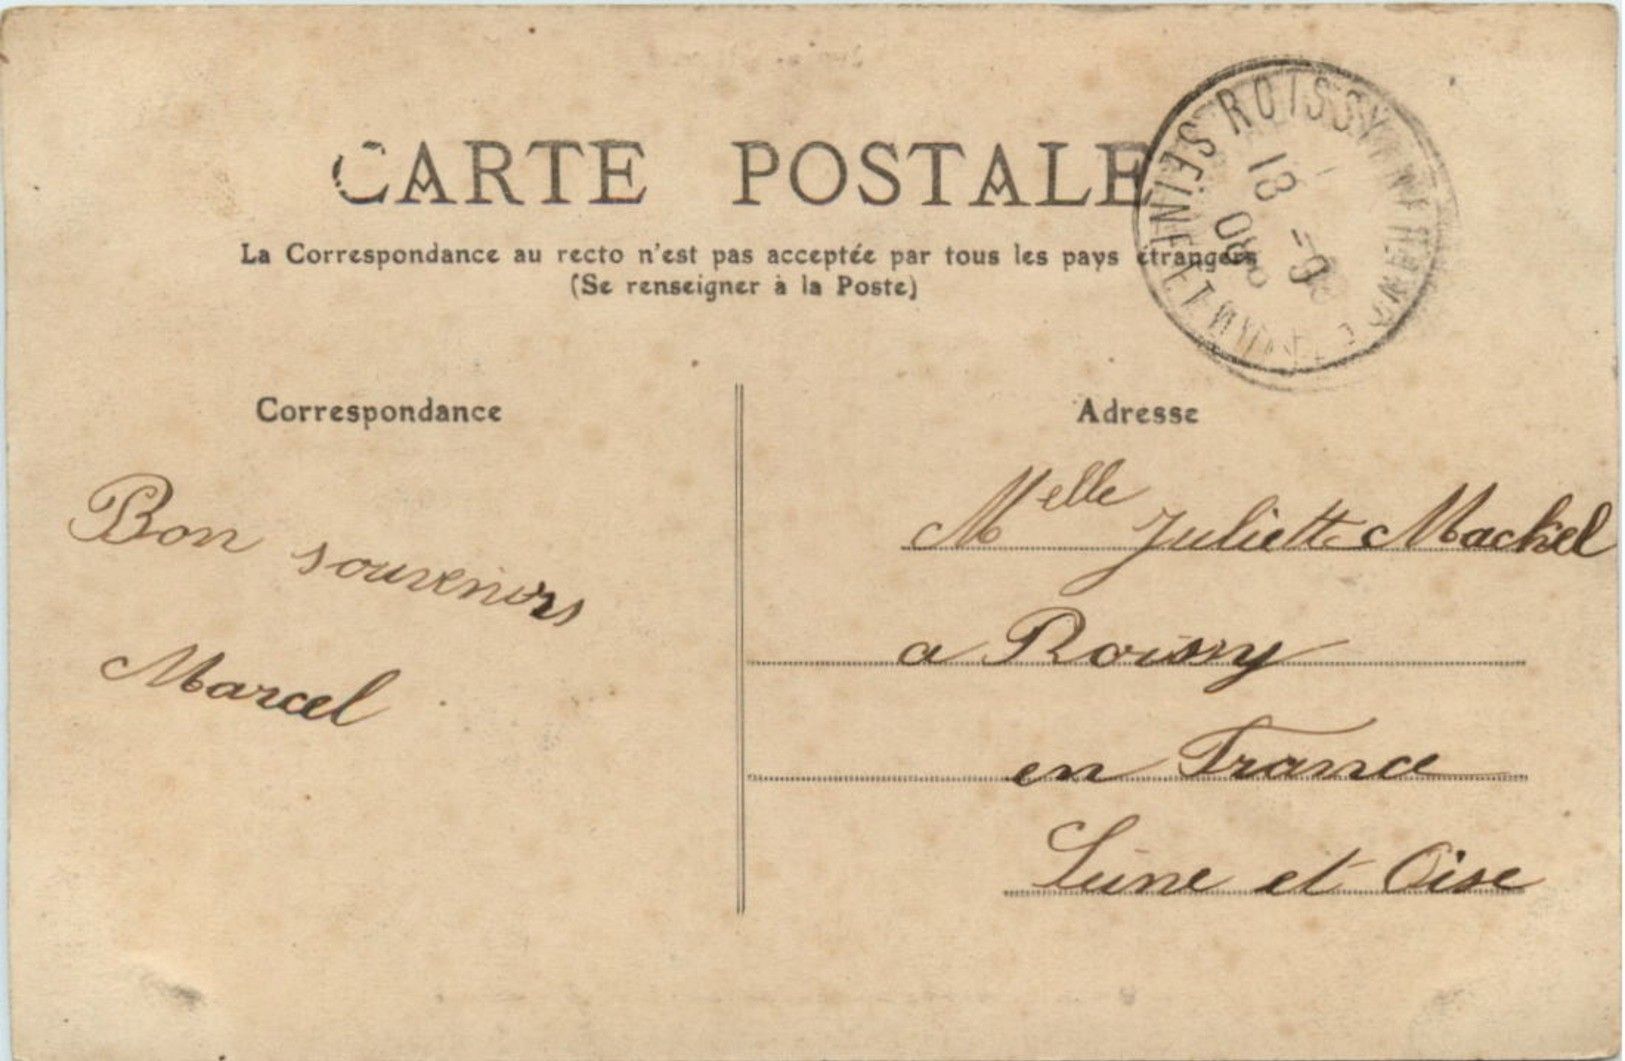 CARTE POSTALE
La Correspondance au recto n'est pas acceptée par tous les pays étrangers
(Se renseigner à la Poste)
ROISSY
SEINE ET
18 -9
08
Correspondance
Bon souvenirs
Marcel
Adresse
Melle Juliette Mackel
a Roissy
en France
Seine et Oise